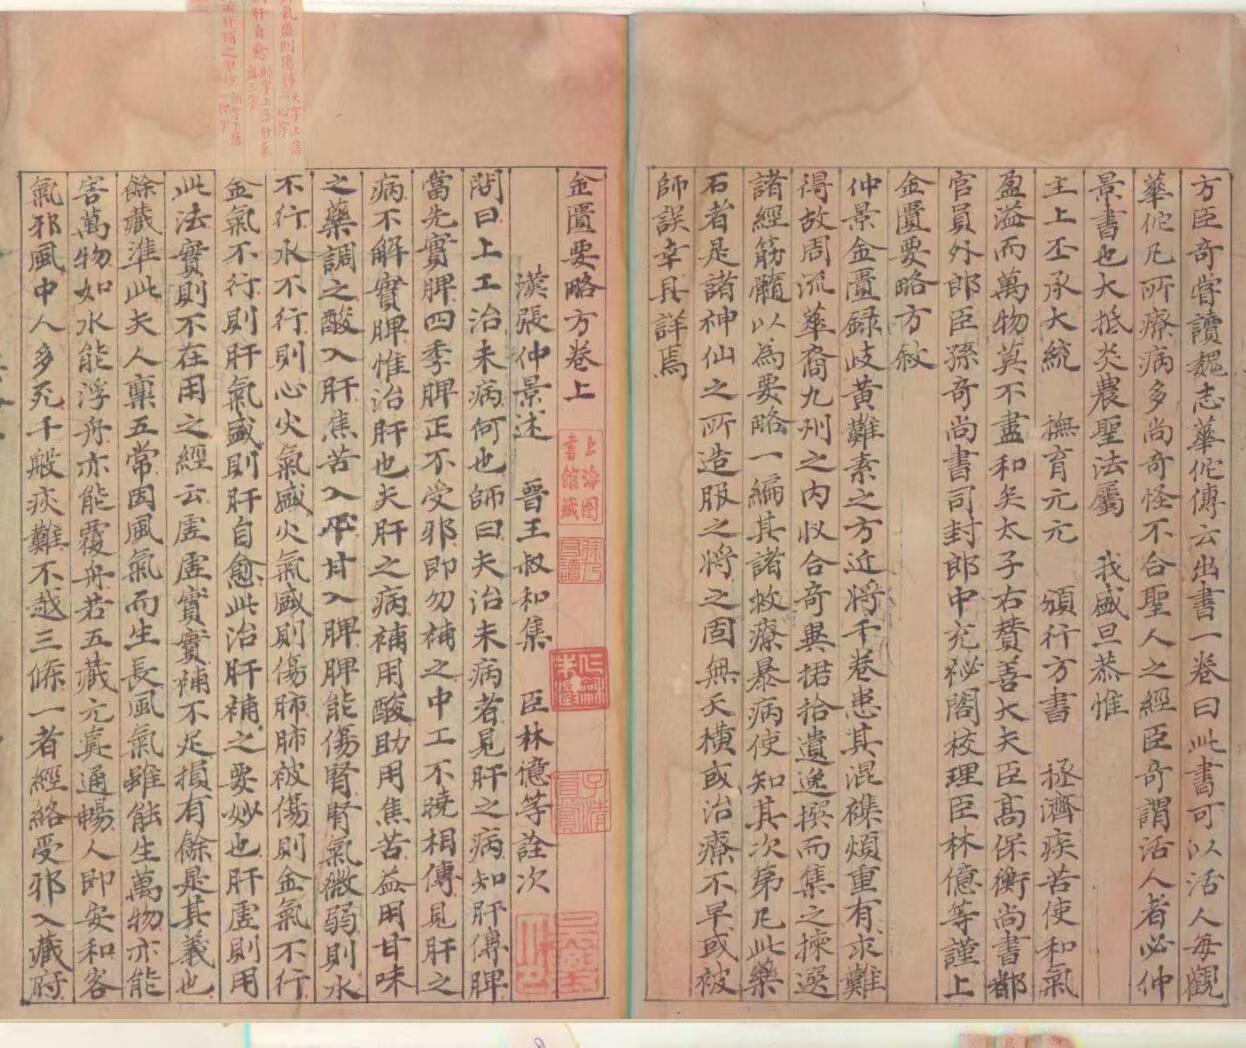 方臣奇嘗讀魏志華佗傳云出書一卷曰此書可以活人每觀
華佗凡所療病多尚奇怪不合聖人之經臣奇謂活人者必仲
景書也大抵炎農聖法屬 我盛旦恭惟
主上丕承大統 撫育元元 頒行方書 拯濟疾苦使和氣
盈溢而萬物莫不盡和矣太子右贊善大夫臣高保衡尚書都
官員外郎臣孫奇尚書司封郎中充祕閣校理臣林億等謹上
金匱要略方敘
仲景金匱録岐黃難素之方近將千卷患其混襍煩重有求難
得故周流華裔九州之内收合奇異捃拾遺逸撰而集之揀選
諸經筋髓以為要略一編其諸救療暴病使知其次第凡此藥
石者是諸神仙之所造服之將之固無夭橫或治療不早或被
師誤幸具詳焉
金匱要略方卷上
上海圖書館藏
漢張仲景述 晉王叔和集 臣林億等詮次
問曰上工治未病何也師曰夫治未病者見肝之病知肝傳脾
當先實脾四季脾王不受邪即勿補之中工不曉相傳見肝之
病不解實脾惟治肝也夫肝之病補用酸助用焦苦益用甘味
之藥調之酸入肝焦苦入心甘入脾脾能傷腎腎氣微弱則水
不行水不行則心火氣盛火氣盛則傷肺肺被傷則金氣不行
金氣不行則肝氣盛則肝自愈此治肝補之要妙也肝虚則用
此法實則不在用之經云虚虚實實補不足損有餘是其義也
餘藏準此夫人稟五常因風氣而生長風氣雖能生萬物亦能
害萬物如水能浮舟亦能覆舟若五藏元真通暢人即安和客
氣邪風中人多死千般疢難不越三條一者經絡受邪入藏府